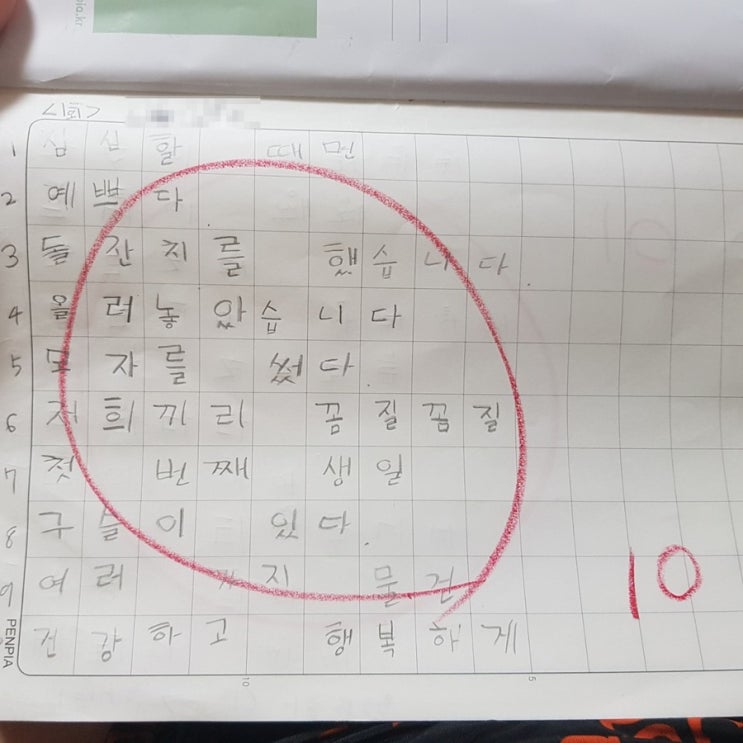 <1회>
1 심심할 때면
2 예쁘다
3 돌잔치를 했습니다.
4 올려놓았습니다
5 모자를 썼다
6 저희끼리 꼼질꼼질
7 첫 번째 생일
8 구슬이 있다.
9 여러 가지 물건
건강하고 행복하게
10
PENPIA
10
5